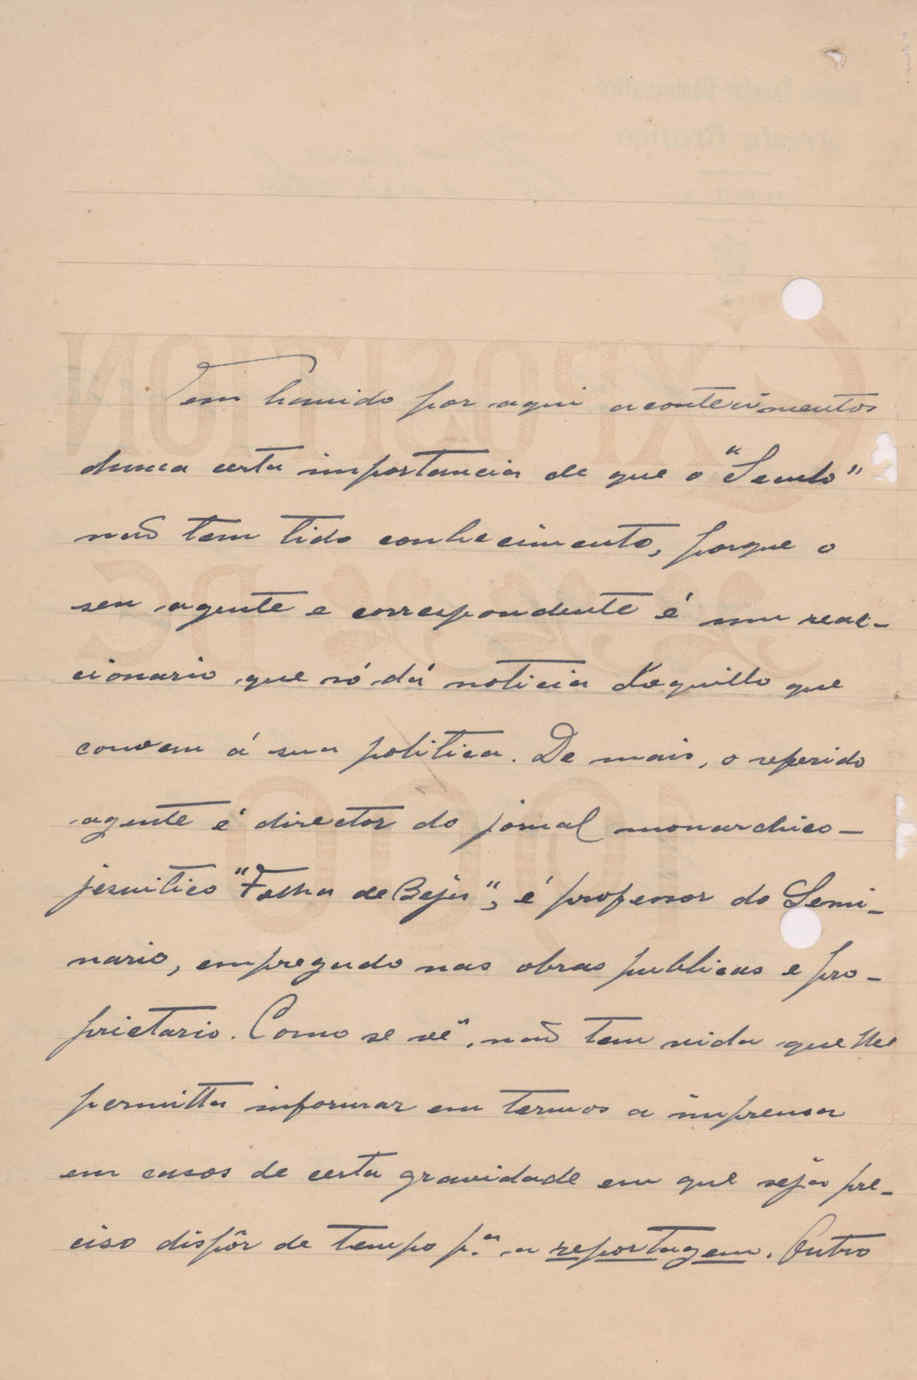 Tem havido por aqui acontecimentos
duma certa importancia de que o "Seculo"
não tem tido conhecimento, porque o
seu agente e correspondente é um reac-
cionario que só dá noticia daquillo que
convem á sua politica. De mais, o referido
agente é director do jornal monarchico-
jesuitico "Folha de Beja", é professor do Semi-
nario, empregado nas obras publicas e pro-
prietario. Como se vê, não tem vida que lhe
permitta informar em termos a imprensa
em casos de certa gravidade em que seja pre-
ciso dispôr de tempo p.ª a reportagem. Outro
EXPOSITION
DE
1900